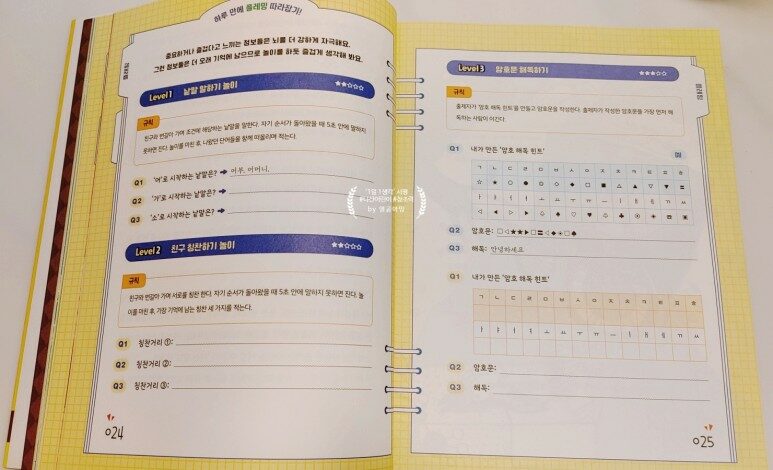 하루 만에 플레밍 따라잡기!
중요하거나 즐겁다고 느끼는 정보들은 뇌를 더 강하게 자극해요.
그런 정보들은 더 오래 기억에 남으므로 놀이를 하듯 즐겁게 생각해 봐요.
플레밍
Level 1 낱말 말하기 놀이 ★★☆☆☆
규칙
친구와 번갈아 가며 조건에 해당하는 낱말을 말한다. 자기 순서가 돌아왔을 때 5초 안에 말하지
못하면 진다. 놀이를 마친 후, 나왔던 단어들을 함께 떠올리며 적는다.
Q1 '어'로 시작하는 낱말은? ➡ 어부, 어머니,
Q2 '가'로 시작하는 낱말은? ➡
Q3 '소'로 시작하는 낱말은? ➡
Level 2 친구 칭찬하기 놀이 ★★☆☆☆
규칙
친구와 번갈아 가며 서로를 칭찬 한다. 자기 순서가 돌아왔을 때 5초 안에 말하지 못하면 진다. 놀
이를 마친 후, 가장 기억에 남는 칭찬 세 가지를 적는다.
Q1 칭찬거리 ①:
Q2 칭찬거리 ②:
Q3 칭찬거리 ③:
024
Level 3 암호문 해독하기 ★★★☆☆
플레밍
규칙
출제자가 '암호 해독 힌트'를 만들고 암호문을 작성한다. 출제자가 작성한 암호문을 가장 먼저 해
독하는 사람이 이긴다.
Q1 내가 만든 '암호 해독 힌트'
ㄱ ㄴ ㄷ ㄹ ㅁ ㅂ ㅅ ㅇ ㅈ ㅊ ㅋ ㅌ ㅍ ㅎ
ㅏ ㅑ ㅓ ㅕ ㅗ ㅛ ㅜ ㅠ ㅡ ㅣ ㅐ ㅔ ㅒ ㅆ
Q2 암호문:
Q3 해독: 안녕하세요
Q1 내가 만든 '암호 해독 힌트'
ㄱ ㄴ ㄷ ㄹ ㅁ ㅂ ㅅ ㅇ ㅈ ㅊ ㅋ ㅌ ㅍ ㅎ
ㅏ ㅑ ㅓ ㅕ ㅗ ㅛ ㅜ ㅠ ㅡ ㅣ ㅐ ㅔ ㅒ ㅆ
Q2 암호문:
Q3 해독:
025
'1일 1생각' 서평
by 앵글이맘